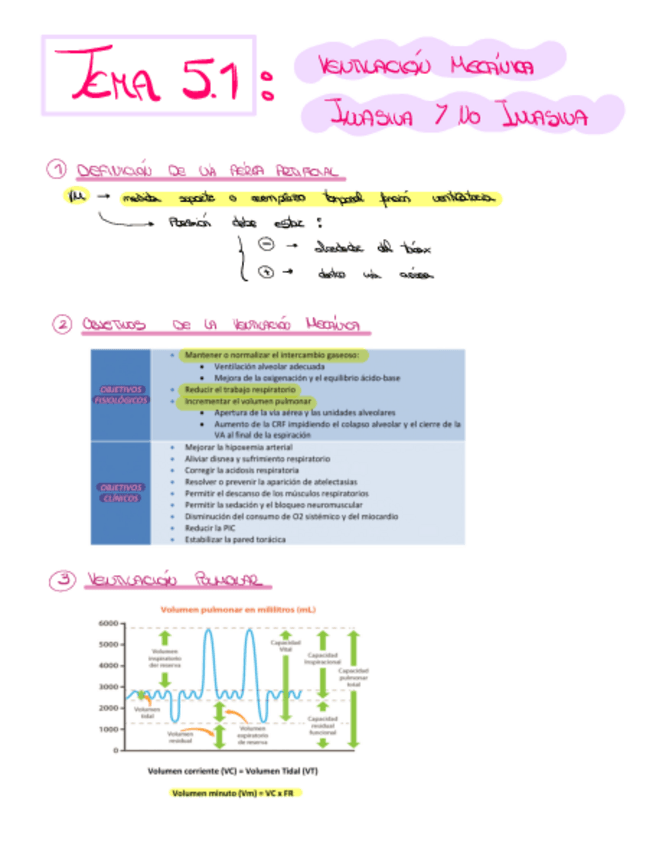 TEMA 5.1:
VENTILACIÓN MECÁNICA
INVASIVA Y NO INVASIVA
① DEFINICIÓN DE VÍA AÉREA ARTIFICIAL
VM → medida soporte o reemplazo temporal función ventilatoria
→ Presión debe estar:
⊖ → alrededor del tórax
⊕ → dentro vía aérea
② OBJETIVOS DE LA VENTILACIÓN MECÁNICA
OBJETIVOS FISIOLÓGICOS
• Mantener o normalizar el intercambio gaseoso:
• Ventilación alveolar adecuada
• Mejora de la oxigenación y el equilibrio ácido-base
• Reducir el trabajo respiratorio
• Incrementar el volumen pulmonar
• Apertura de la vía aérea y las unidades alveolares
• Aumento de la CRF impidiendo el colapso alveolar y el cierre de la
VA al final de la espiración
OBJETIVOS CLÍNICOS
• Mejorar la hipoxemia arterial
• Aliviar disnea y sufrimiento respiratorio
• Corregir la acidosis respiratoria
• Resolver o prevenir la aparición de atelectasias
• Permitir el descanso de los músculos respiratorios
• Permitir la sedación y el bloqueo neuromuscular
• Disminución del consumo de O2 sistémico y del miocardio
• Reducir la PIC
• Estabilizar la pared torácica
③ VENTILACIÓN PULMONAR
Volumen pulmonar en mililitros (mL)
6000
5000
4000
3000
2000
1000
0
Volumen
inspiratorio
de reserva
Volumen
tidal
Volumen
residual
Volumen
espiratorio
de reserva
Capacidad
Vital
Capacidad
Inspiracional
Capacidad
residual
funcional
Capacidad
pulmonar
total
Volumen corriente (VC) = Volumen Tidal (VT)
Volumen minuto (Vm) = VC x FR